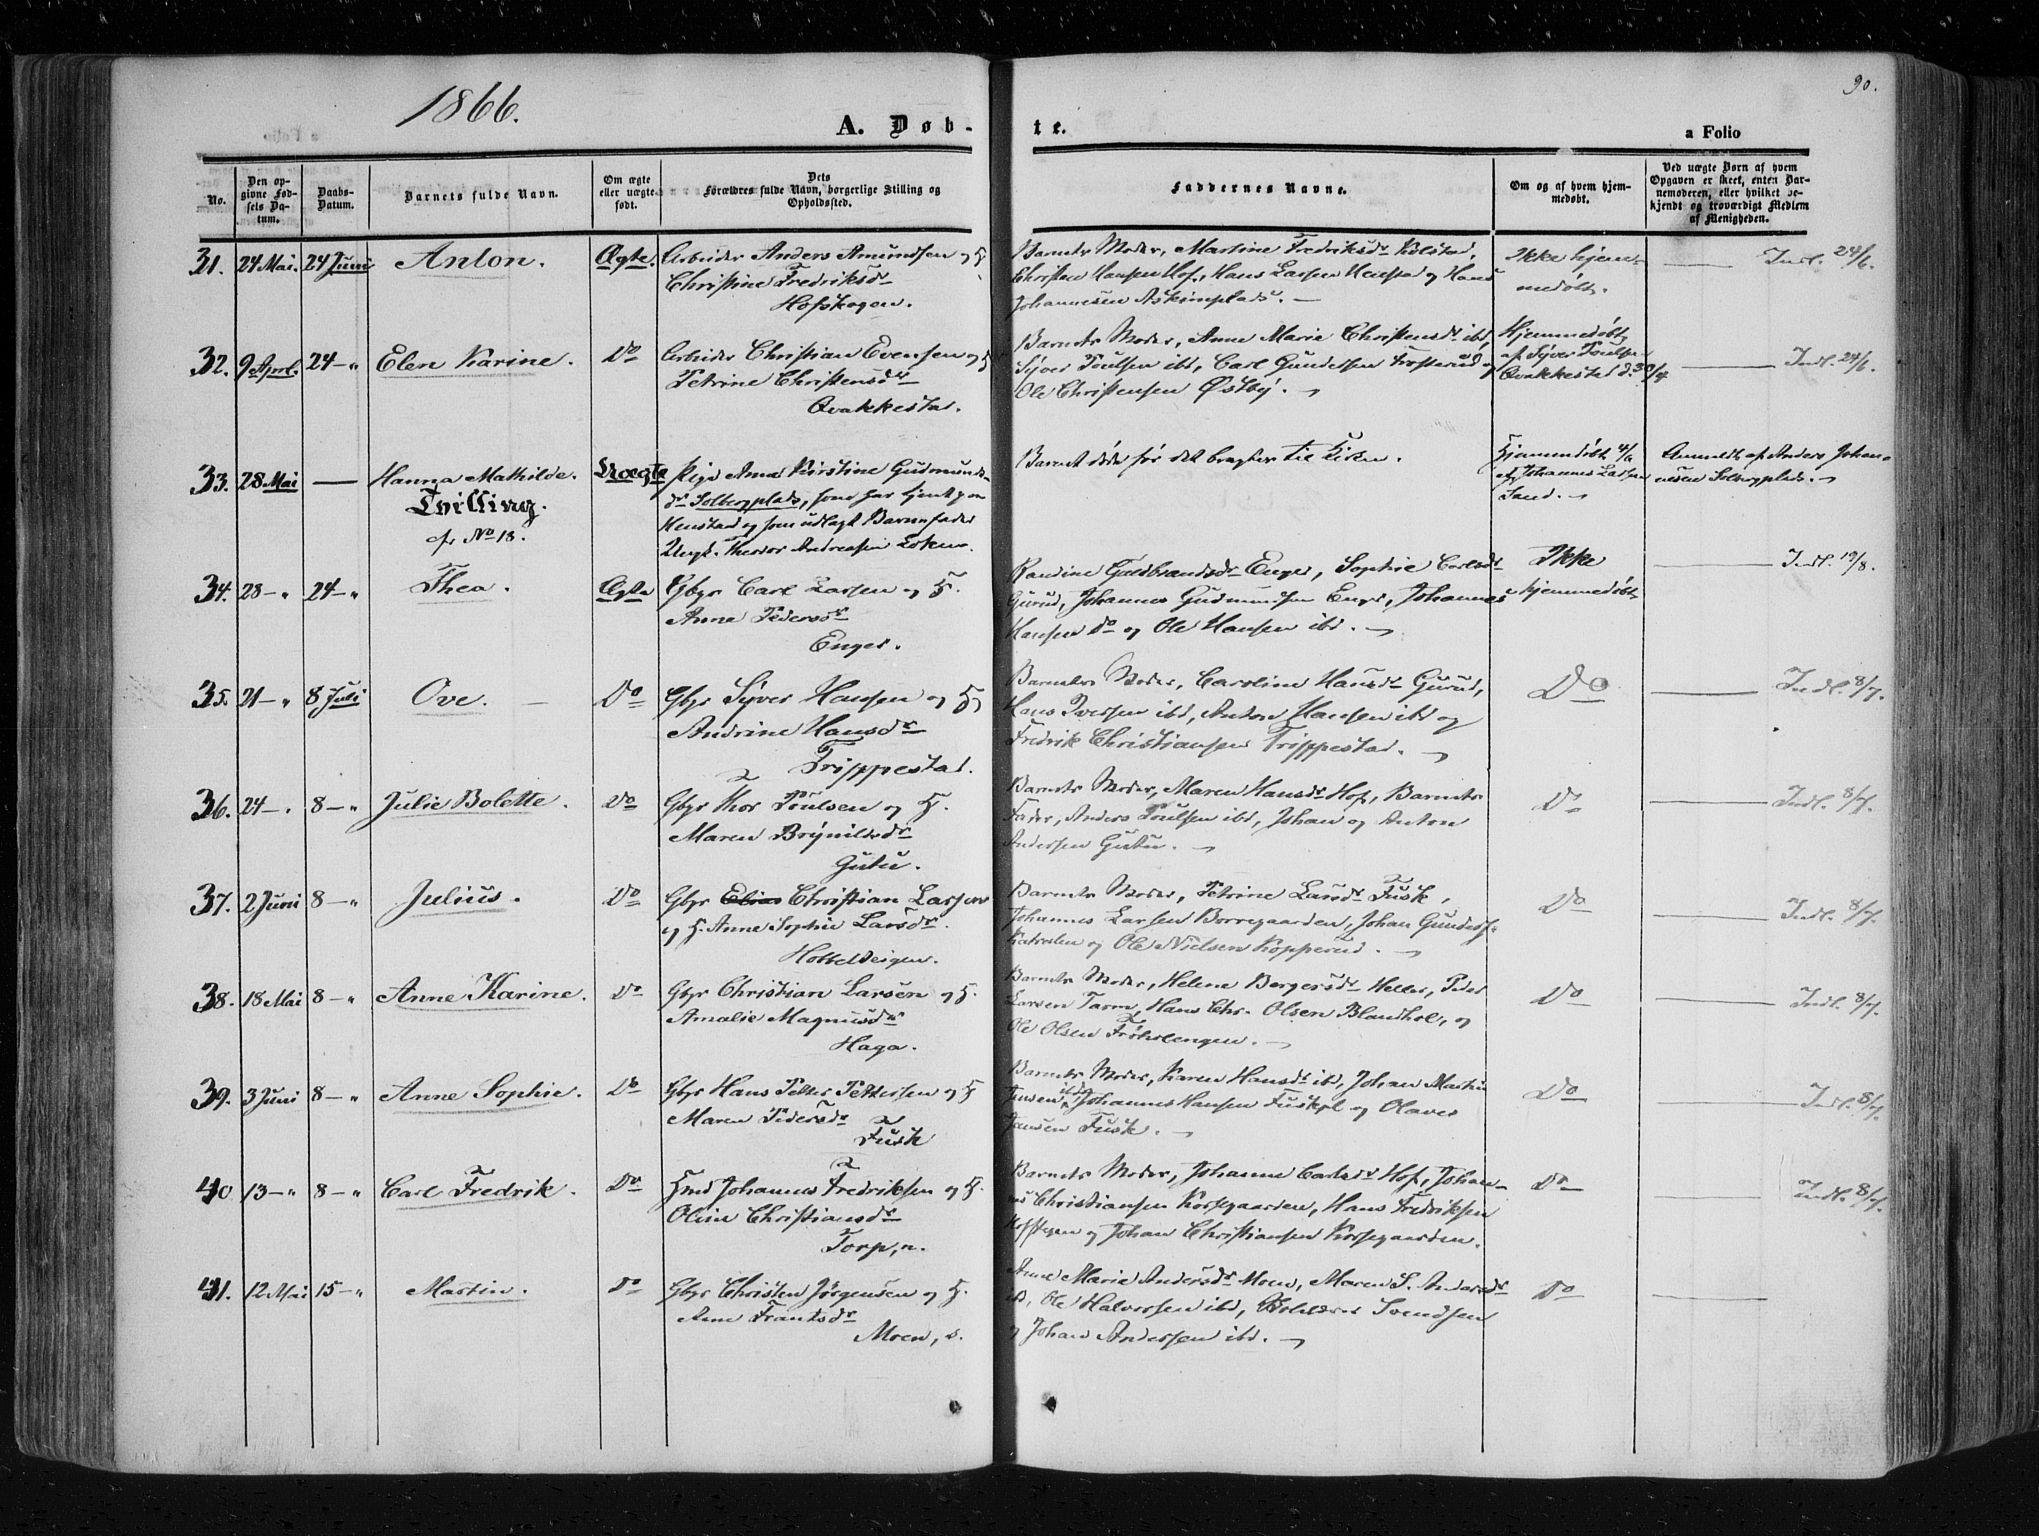 1866.
90.
A. Døb-
te.
a Folio
No.
Den op-
givne Fød-
sels Da-
tum.
Daabs-
Datum.
Barnets fulde Navn.
Om ægte
eller uægte
født.
Dets
Forældres fulde Navn, borgerlige Stilling og
Opholdssted.
Faddernes Navne.
Om og af hvem hjem-
medøbt.
Ved uægte Børn af hvem
Opgaven er skeet, enten Bar-
nemoderen, eller hvilket be-
kjendt og troværdigt Medlem
af Menigheden.
31. 24 Mai. 24 Juni Anton. Ægte. Arbeider Anders Amundsen og H
Christine Fredriksdr
Hofskogen.
Barnets Moder, Martine Fredriksdr Kolstad,
Christen Hansen Hof, Hans Larsen Henstad og Hans
Johannesen Askimplads.
Ikke hjem-
medøbt.
Indl. 24/6.
32. 9 April. 24 — „ Elen Karine. Do Arbeider Christian Evensen og H
Petrine Christensdr
Qvakkestad.
Barnets Moder, Anne Marie Christensdr ibd,
Syver Poulsen ibd, Carl Gundersen Trosterud og
Ole Christensen Østby.
Hjemmedøbt
af Syver Poulsen
Qvakkestad d. 30/4
Indl. 24/6.
33. 28 Mai — Hanna Mathilde. Uægte Pige Anna Kirstine Gudmunds-
Tvilling.
cfr No 18.
dr Solbergplads, som har tjent paa
Henstad og som udlagt Barnefader
Ungk. Theodor Andreasen Loken.
Barnet døde før det bragtes til Kirken.
Hjemmedøbt 4/6
af Johannes Larsen
Sand.
Anmeldt af Anders Johan-
nesen Solbergplads.
34. 28 — „ 24 — „ Thea. Ægte Gbgr Carl Larsen og H.
Anne Pedersdr
Enger.
Randine Guldbrandsdr Enger, Sophie Carlsdr
Gurud, Johannes Gudmundsen Enger, Johannes
Hansen Do og Ole Hansen ibd.
Ikke
hjemmedøbt
Indl. 19/8.
35. 21 — „ 8 Juli Ove. Do Gbgr Syver Hansen og H
Andrine Hansdr
Trippestad.
Barnets Moder, Caroline Hansdr Gurud,
Hans Iversen ibd, Anton Hansen ibd og
Fredrik Christiansen Trippestad.
Do
Indl. 8/7.
36. 24 — „ 8 — „ Julie Bolette. Do Gbgr Thor Poulsen og H.
Maren Brynildsdr
Gutu.
Barnets Moder, Maren Hansdr Hof, Barnets
Fader, Anders Poulsen ibd, Johan og Anton
Andersen Gutu.
Do
Indl. 8/7.
37. 2 Juni 8 — „ Julius. Do Gbgr Elias Christian Larsen
og H. Anne Sophie Larsdr.
Barnets Moder, Petrine Larsdr Fusk,
Johannes Larsen Borregaarden, Johan Gunders.
og Ole Nielsen Kopperud.
Do
Indl. 8/7.
38. 18 Mai 8 — „ Anne Karine. Do Gbgr Christian Larsen og H.
Amalie Magnusdr
Haga.
Barnets Moder, Helene Bergersdr Heller, Peder
Larsen Tarm, Hans Chr. Olsen Blandhol, og
Ole Olsen Frøholengen.
Do
Indl. 8/7.
39. 3 Juni 8 — „ Anne Sophie. Do Gbgr Hans Petter Pettersen og H
Maren Pedersdr
Fusk
Barnets Moder, Karen Hansdr ibd, Johan Martin
Jensen ibd, Johannes Hansen Fuskpl og Olaves
Jansen Fusk.
Do
Indl. 8/7.
40 13 — „ 8 — „ Carl Fredrik. Do Hmd Johannes Fredriksen og H.
Oline Christiansdr
Torp, n.
Barnets Moder, Johanne Carlsdr Hof, Johan-
nes Christiansen Korsegaarden, Hans Fredriksen
Hofskogen og Johan Christiansen Korsegaarden.
Do
Indl. 8/7.
41. 12 Mai 15 — „ Martin. Do Gbgr Christen Jørgensen og H.
Anne Frantsdr
Moen, s.
Anne Marie Andersdr Moen, Maren S. Andersdr
ibd, Ole Halvorsen ibd, Svendsen
og Johan Andersen ibd.
Do